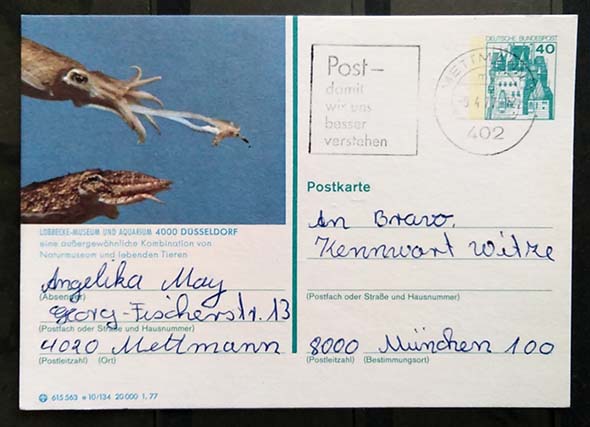 LÖBBECKE-MUSEUM UND AQUARIUM 4000 DÜSSELDORF
eine außergewöhnliche Kombination von
Naturmuseum und lebenden Tieren
Angelika May
(Absender)
Georg-Fischerstr. 13
(Postfach oder Straße und Hausnummer)
4020 Mettmann
(Postleitzahl) (Ort)
615 563 e 10/134 20 000 1. 77
Post-
damit
wir uns
besser
verstehen
METTMANN
402
DEUTSCHE BUNDESPOST
40
Postkarte
An Bravo.
Kennwort Witze
(Postfach oder Straße und Hausnummer)
8000 München 100
(Postleitzahl) (Bestimmungsort)